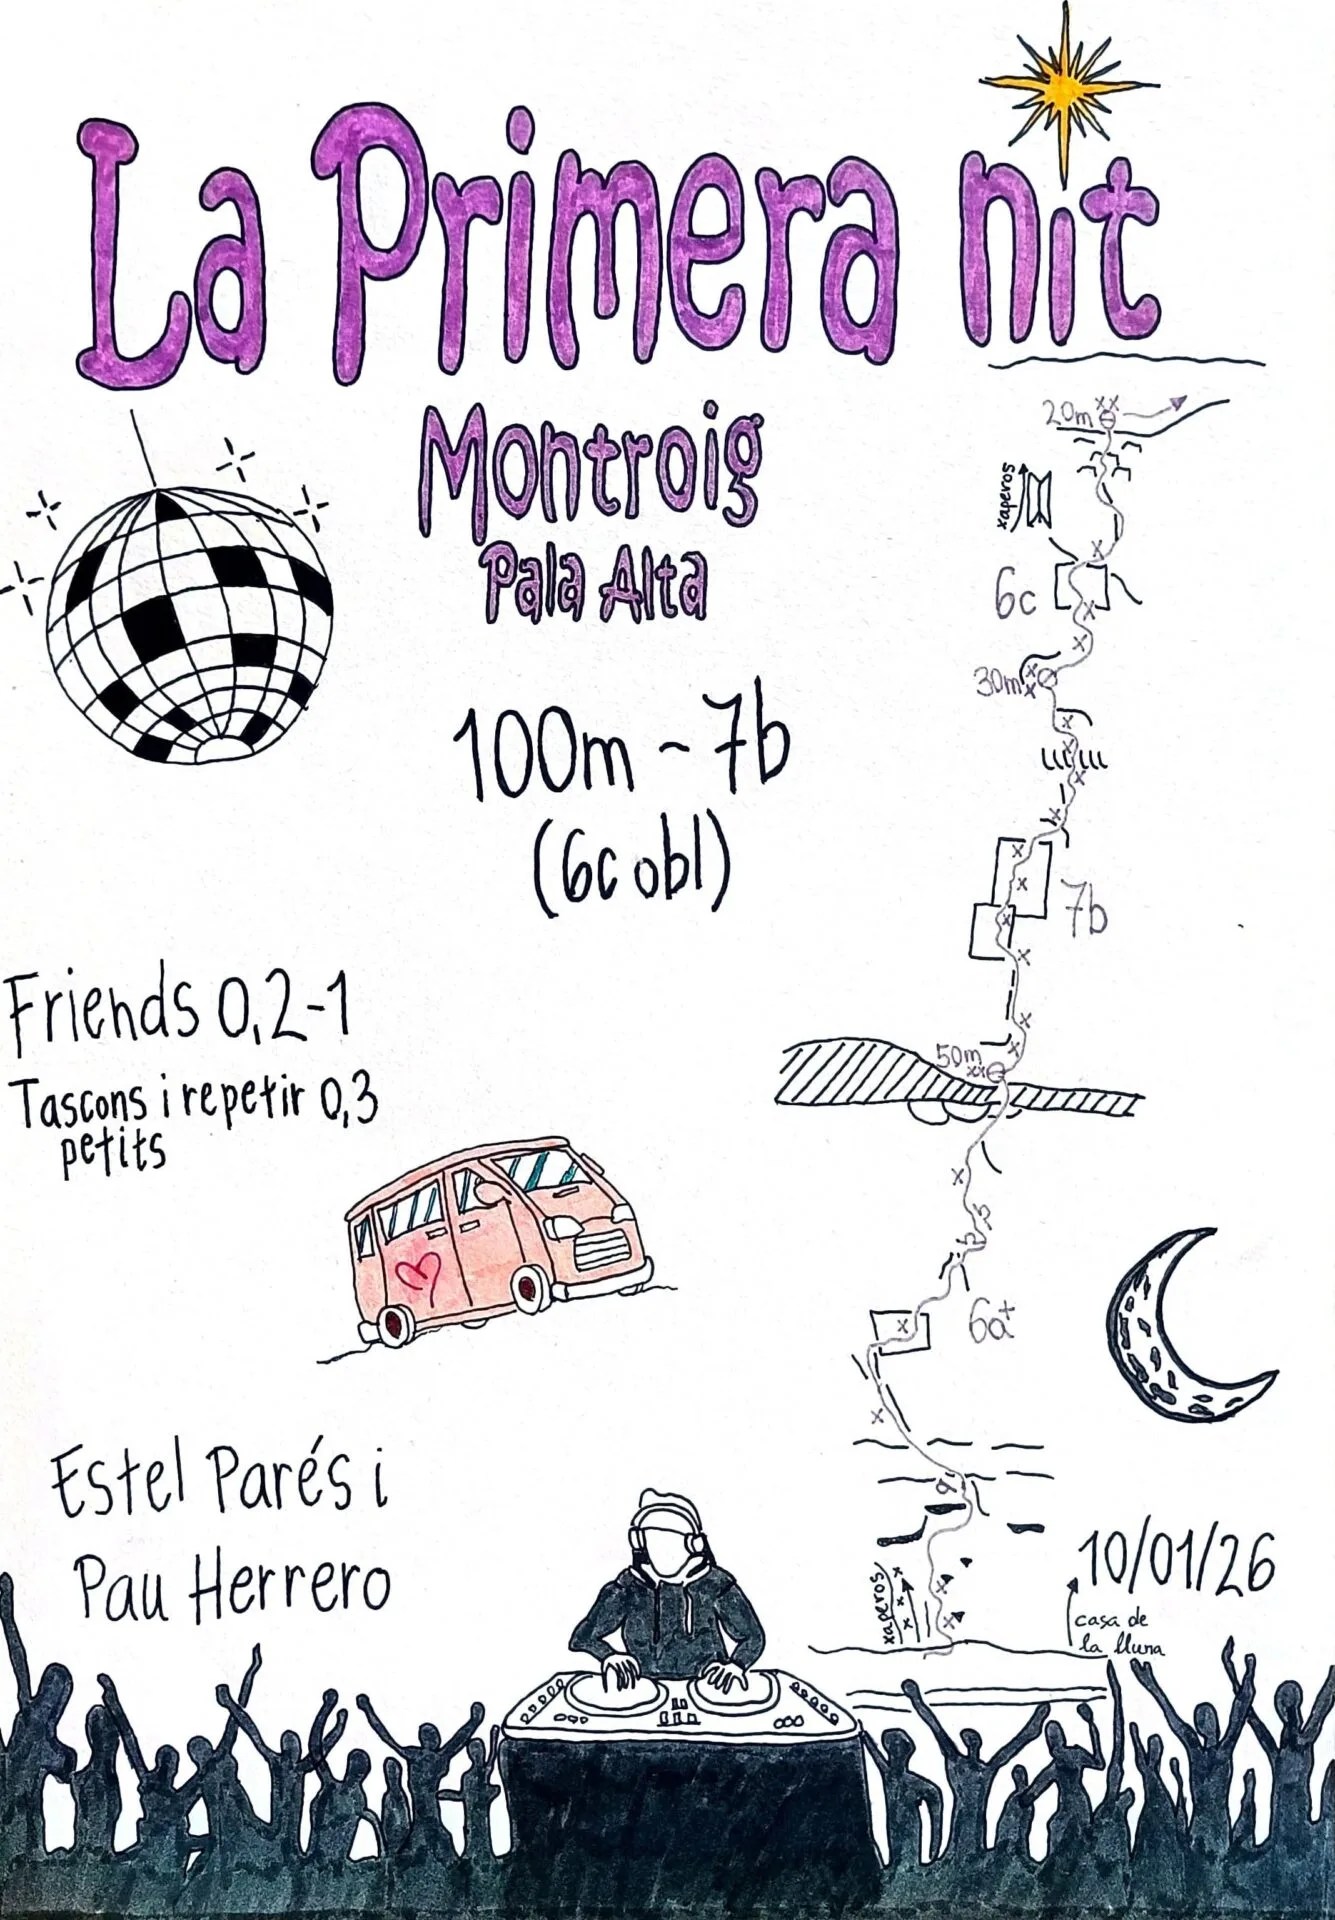 La Primera nit
Montroig
Pala Alta
100m ~ 7b
(6c obl)
Friends 0,2-1
Tascons i repetir 0,3
petits
Estel Parés i
Pau Herrero
20m
xaperos
6c
30m
7b
50m
6a+
xaperos
10/01/26
casa de
la lluna